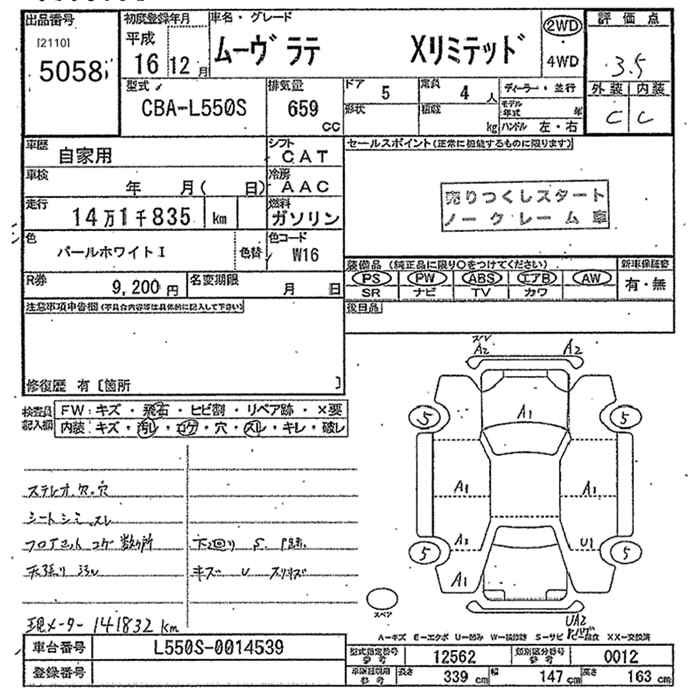 出品番号
[2110]
5058
初度登録年月
平成
16 12月
車名・グレード
ムーヴ ラテ Xリミテッド
2WD
4WD
評価点
3.5
外装 内装
C C
型式
CBA-L550S
排気量
659
CC
ドア
5
定員
4人
形状
積載
kg
ディーラー・並行
モデル年式 年
ハンドル 左・右
車歴
自家用
シフト
CAT
車検
年 月( 日)
冷房
AAC
走行
14万1千835 km
燃料
ガソリン
色
パールホワイトI
色替
色コード
W16
R券
9,200円
名変期限
月 日
セールスポイント(正常に機能するものに限ります)
売りつくしスタート
ノークレーム車
装備品(純正品に限り○をつけてください)
PS PW ABS エアB AW
SR ナビ TV カワ
新車保証書
有・無
後日品
注意事項申告欄(不具合内容等は具体的に記入して下さい)
修復歴 有〔箇所 〕
検査員記入欄
FW:キズ・飛石・ヒビ割・リペア跡・×要
内装:キズ・汚レ・コゲ・穴・スレ・キレ・破レ
ステレオ欠.穴
シートシミ.スレ
フロアマット コゲ 数ヶ所
天張り 汚レ
下廻り S.
キズ U
現メーター 141832 km
A2 A2
A1
5 5
A1 A1
A1 U1
5 5
A1
UA2
スペア
A-キズ E-エクボ U-凹み W-補修跡 S-サビ C-腐食 XX-交換済
車台番号
L550S-0014539
登録番号
型式指定番号
参考
12562
類別区分番号
参考
0012
参考
長さ 339 cm
幅 147 cm
高さ 163 cm